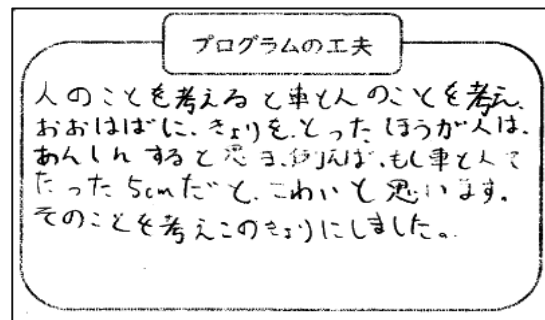 プログラムの工夫
人のことを考えると車と人のことを考え、
おおはばに、きょりを、とったほうが人は、
あんしんすると思う、例えば、もし車と人で
たった5cmだと、こわいと思います。
そのことを考えこのきょりにしました。